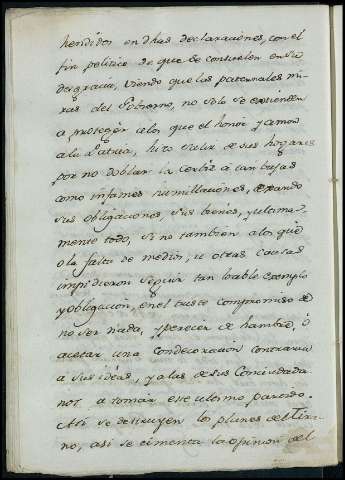 hendidos en dhas declaraciones, con el
fin politico de que se consuelen en su
desgracia, viendo que las paternales mi-
ras del Gobierno, no solo se extienden
a proteger a los que el honor y amor
a la Patria, hizo salir de sus hogares
por no doblar la cerbiz á tan bajas
como infames humillaciones, dejando
sus obligaciones, sus bienes, y ultima-
mente todo, si no tambien a los que
o la falta de medios, u otras causas
impidieron seguir tan loable exemplo
y obligacion, en el triste compromiso de
no ser nada, y perecer de hambre, ó
acetar una condecoracion contraria
á sus ideas, y a las de sus Conciudada
nos a tomar este ultimo partido.
Asi se destruyen los planes del Tira-
no, asi se cimenta la opinion del